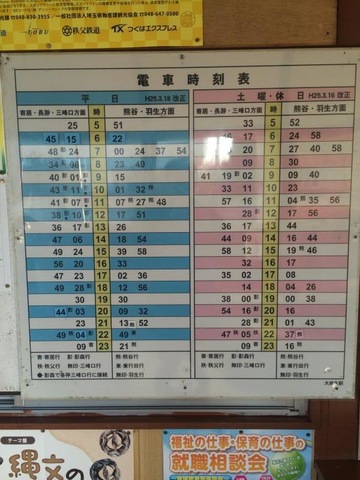 光課 048-830-3955 / 一般社団法人埼玉県物産観光協会 ☎048-647-0500
秩父鉄道 つくばエクスプレス
電車時刻表
平 日 H25.3.16 改正
寄居・長瀞・三峰口方面 時 熊谷・羽生方面
25 5 51
45 15 6 22
48 24 7 00 24 37 54
34 08 8 23 49
40 01 9 15
43 11 10 01 32
41 07 11 07 27 48
38 10 12 17 51
36 17 13 26
47 06 14 18 54
49 24 15 39 58
56 20 16 33
47 23 17 02 36
49 28 18 12 56
30 19 30
44 03 20 09 32
23 21 13 52
49 04 22 49
09 23 21
寄:寄居行 影:影森行 熊:熊谷行
秩:秩父行 無印:三峰口行 東:東行田行
影:影森で各停三峰口行に接続 無印:羽生行
土曜・休日 H25.3.16 改正
寄居・長瀞・三峰口方面 時 熊谷・羽生方面
33 5 52
17 6 24 58
20 7 27 40 58
09 8 30
41 19 02 9 09 40
33 11 10 23
57 16 11 04 35 56
28 12 17 56
36 17 13 44
44 09 14 16 44
58 12 15 19 46
32 16 17
35 02 17 08
14 18 04 26
38 00 19 00 38
54 16 20 16
28 21 01 43
47 05 22 37
09 23 16
寄:寄居行 影:影森行 熊:熊谷行
秩:秩父行 無印:三峰口行 東:東行田行
無印:羽生行
テーマ展
縄文の
福祉の仕事・保育の仕事の
就職相談会